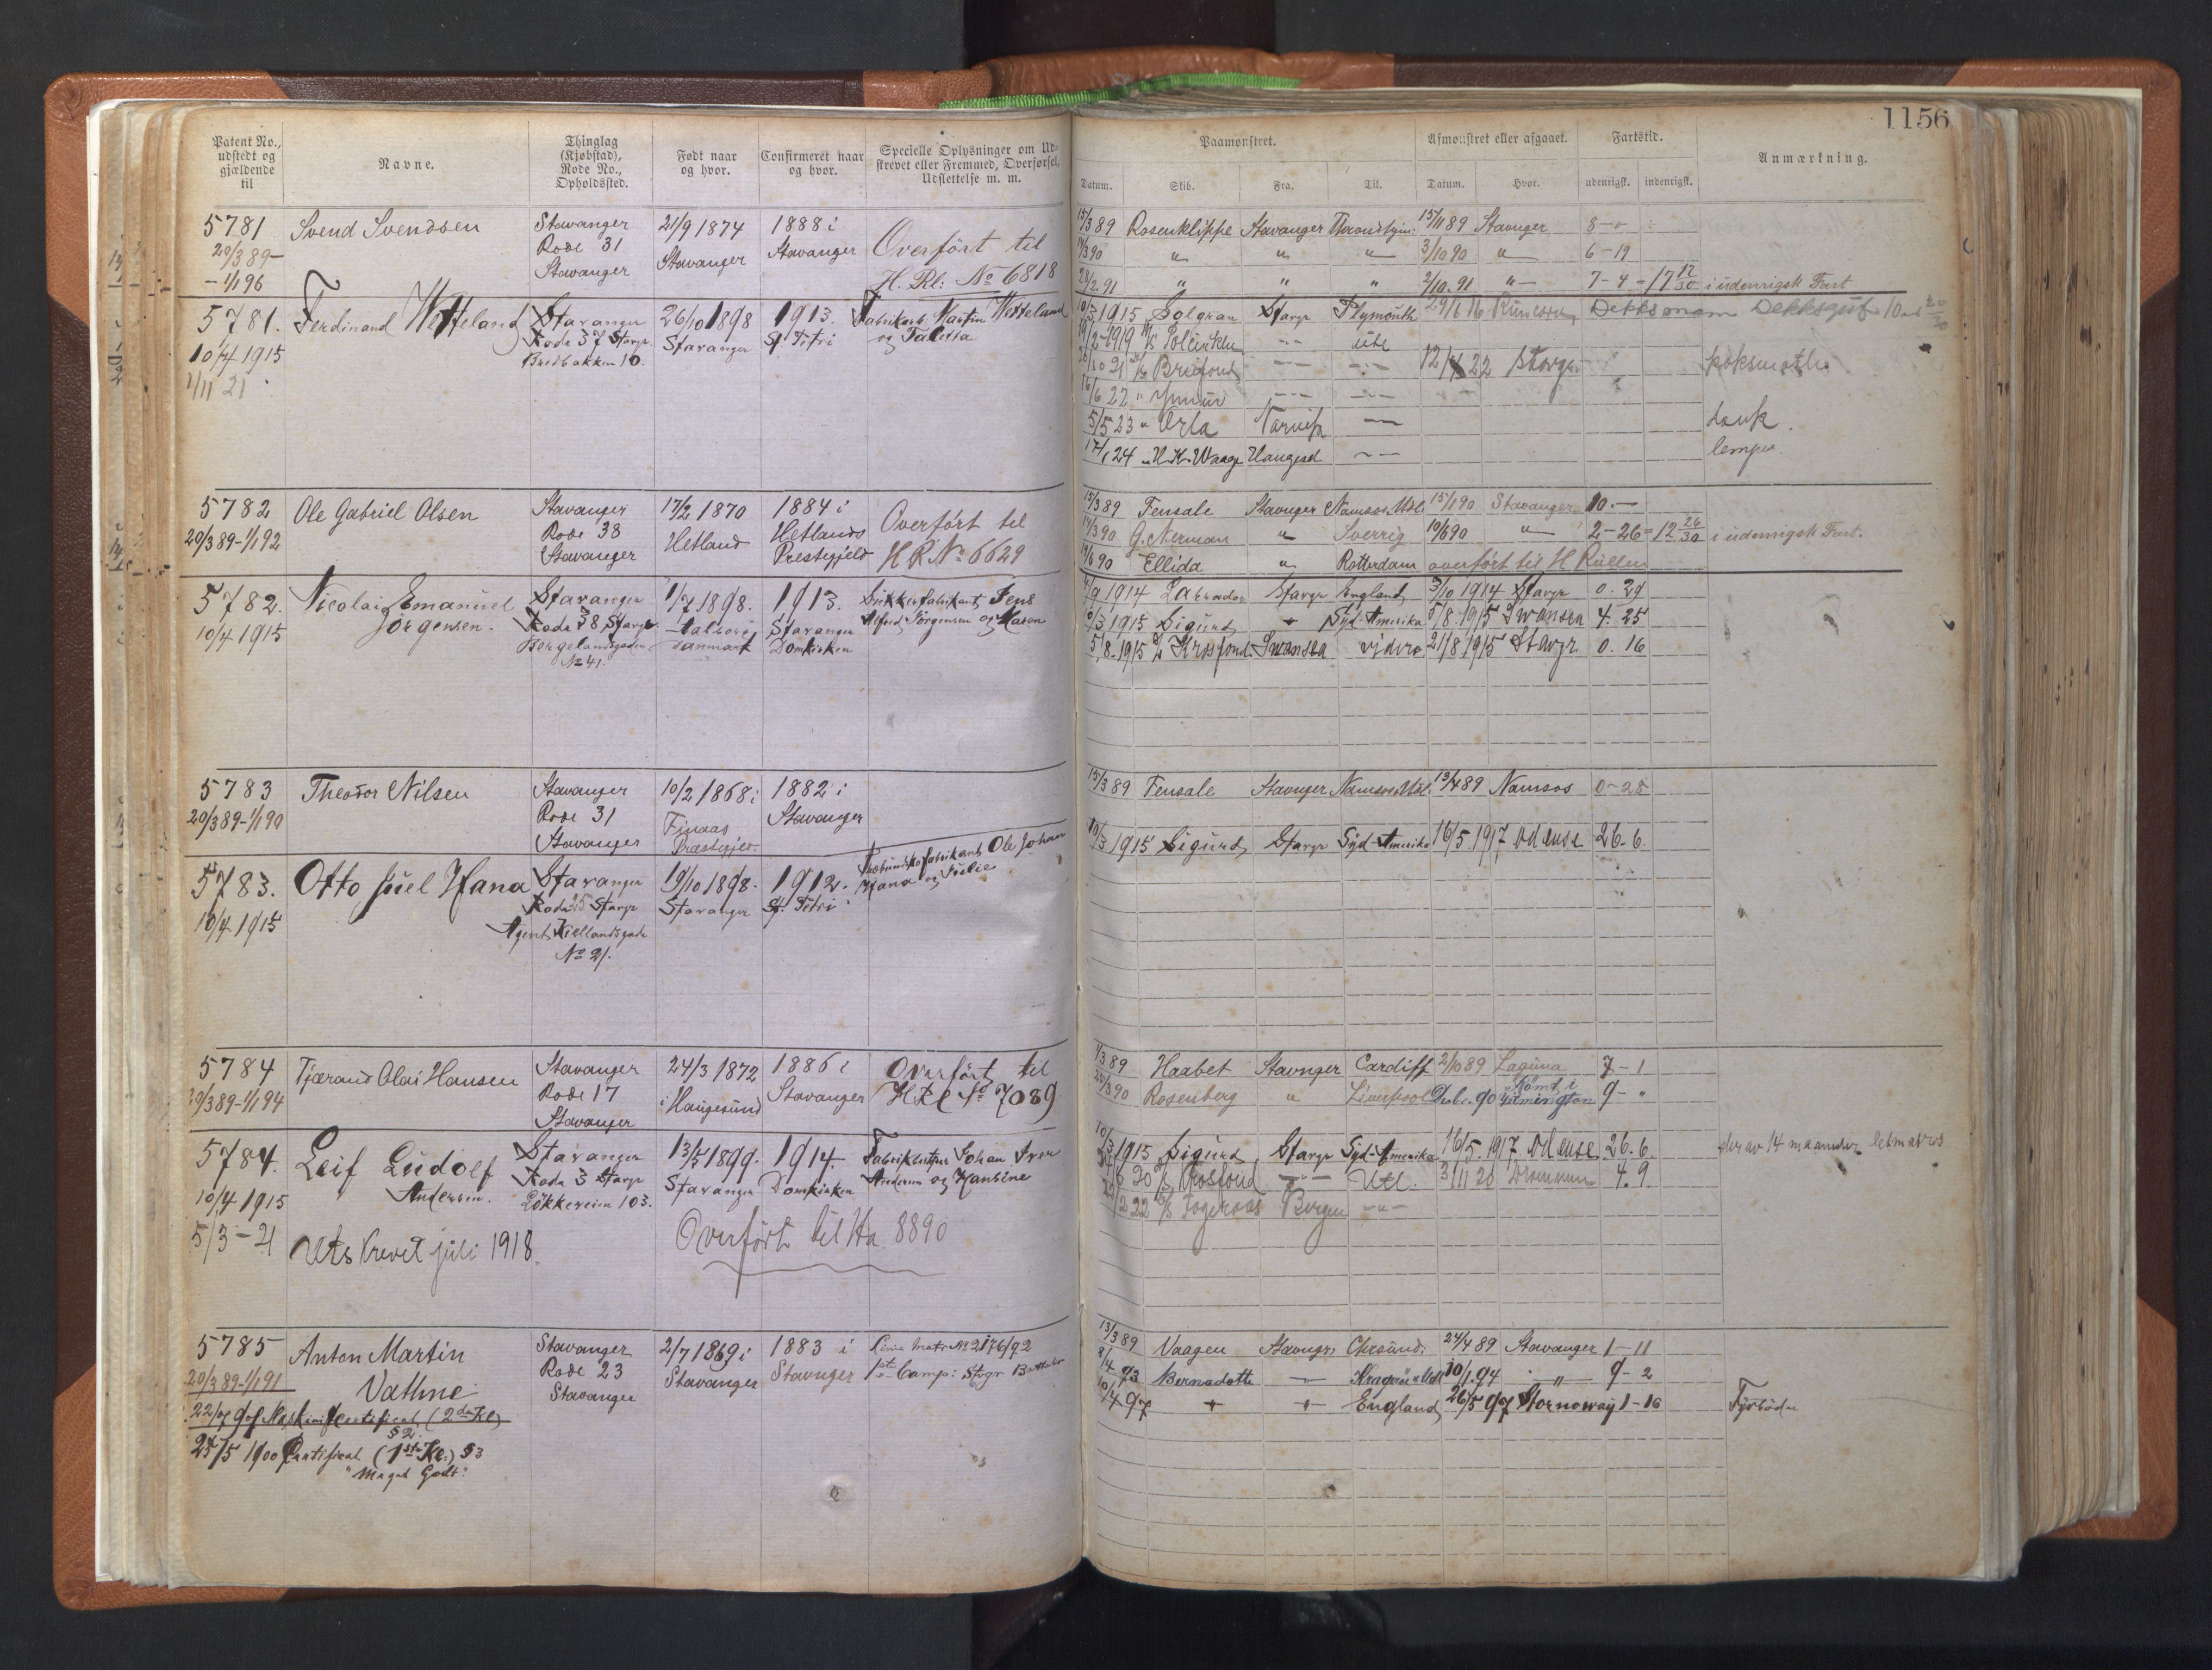 1156
Patent No., udstedt og gjældende til
Navne.
Thinglag (Kjøbstad), Rode No., Opholdssted.
Født naar og hvor.
Confirmeret naar og hvor.
Specielle Oplysninger om Udskrevet eller Fremmed, Overførsel, Udslettelse m. m.
Paamønstret.
Afmønstret eller afgaaet.
Fartstid.
Anmærkning.
Datum.
Skib.
Fra.
Til.
Datum.
Hvor.
udenrigsk.
indenrigsk.
5781 Svend Svendsen Stavanger 21/9 1874 1888 i
20/3 89 – Rode 31 Stavanger Stavanger Overført til
– 1/1 96 Stavanger H. Rl: No 6818
15/3 89 Rosenklippe Stavanger 15/11 89 Stavanger 8 –
11/3 90 " " " 3/10 90 " 6 – 19
28/2 91 " " " 2/10 91 " 7 – 4 = 17 12/30 i udenrigsk Fart
5781. Ferdinand Stavanger 26/10 1898 1913.
10/4 1915 Rode 37 Stavgr Stavanger St. Petri
1/11 21 Bredbakken 10.
10/3 1915 Solgran Stavgr Plymouth
12/4 22 Stavgr
5/5 23 " Orla Narvik
17/1 24 " H. K. Waage Haugesd lemper
5782 Ole Gabriel Olsen Stavanger 17/2 1870 1884 i
20/3 89 – 1/1 92 Rode 38 Hetland Hetlands Overført til
Stavanger Prestegjeld H R No 6629
15/3 89 Fensale Stavanger Namsos 15/1 90 Stavanger 10. –
14/3 90 G. Nerman " Sverrig 10/6 90 " 2 – 26 = 12 26/30 i udenrigsk Fart.
19/6 90 Ellida " Rotterdam overført til H Rullen
5782. Nicolai Emanuel Stavanger 1/7 1898. 1913. Jens
10/4 1915 Jørgensen. Rode 38 Stavgr Aalborg Stavanger Alfred Jørgensen og Maren
Bergelandsgaden Danmark Domkirken
No 41.
4/9 1914 Labrador Stavgr England 3/10 1914 Stavgr 0. 29
10/3 1915 Sigurd " Syd-Amerika 5/8 1915 Swansea 4. 25
5/8 1915 Swansea videre 21/8 1915 Stavgr 0. 16
5783 Theodor Nilsen Stavanger 10/2 1868 i 1882 i
20/3 89 – 1/1 90 Rode 31 Stavanger
Stavanger Præstegjeld
15/3 89 Fensale Stavnger Namsos 13/4 89 Namsos 0 – 28
5783. Otto Juel Hana Stavanger 19/10 1898. 1912. Ole Johan
10/4 1915 Rode 25 Stavgr Stavanger St. Petri Hana og Julie
Agent Kiellandsgade
No 21.
10/3 1915 Sigurd Stavgr Syd-Amerika 16/5 1917 Odense 26. 6.
5784 Tjærand Olai Hansen Stavanger 24/3 1872 1886 i Overført til
20/3 89 – 1/1 94 Rode 17 i Haugesund Stavanger No 7089
Stavanger
1/3 89 Haabet Stavnger Cardiff 2/10 89 Laguna 7 – 1
20/3 90 Rosenberg " Liverpool Debr. 90 Rømt i Wilmington 9 – "
5784. Leif Ludolf Stavanger 1899. 1914. Johan Iver
10/4 1915 Andersen. Rode 3 Stavgr Stavanger Domkirken Andersen og Hansine
5/3 – 21 Løkkeveien 103.
Utskrevet juli 1918. Overført til Ha. 8890
10/3 1915 Sigurd Stavgr Syd-Amerika 16/5 1917 Odense 26. 6. derav 14 maaneder letmatros
20 Utl. 3/11 20 Drammen 4. 9.
22 Bergen
5785 Anton Martin Stavanger 2/7 1869 i 1883 i
20/3 89 – 1/1 91 Vathne Rode 23 Stavanger Stavnger
Stavanger
22/7 98 Maskinistcertifikat (2den Kl)
§ 2.
25/5 1900 Certifikat (1ste Kl.) § 3
"Meget Godt"
13/3 89 Vaagen Stavngr Chrsund. 24/4 89 Stavanger 1 – 11
8/4 93 Bernadotte " 10/1 94 " 9 – 2
10/4 97 " " England 26/5 97 Stornoway 1 – 16 Fyrbøder